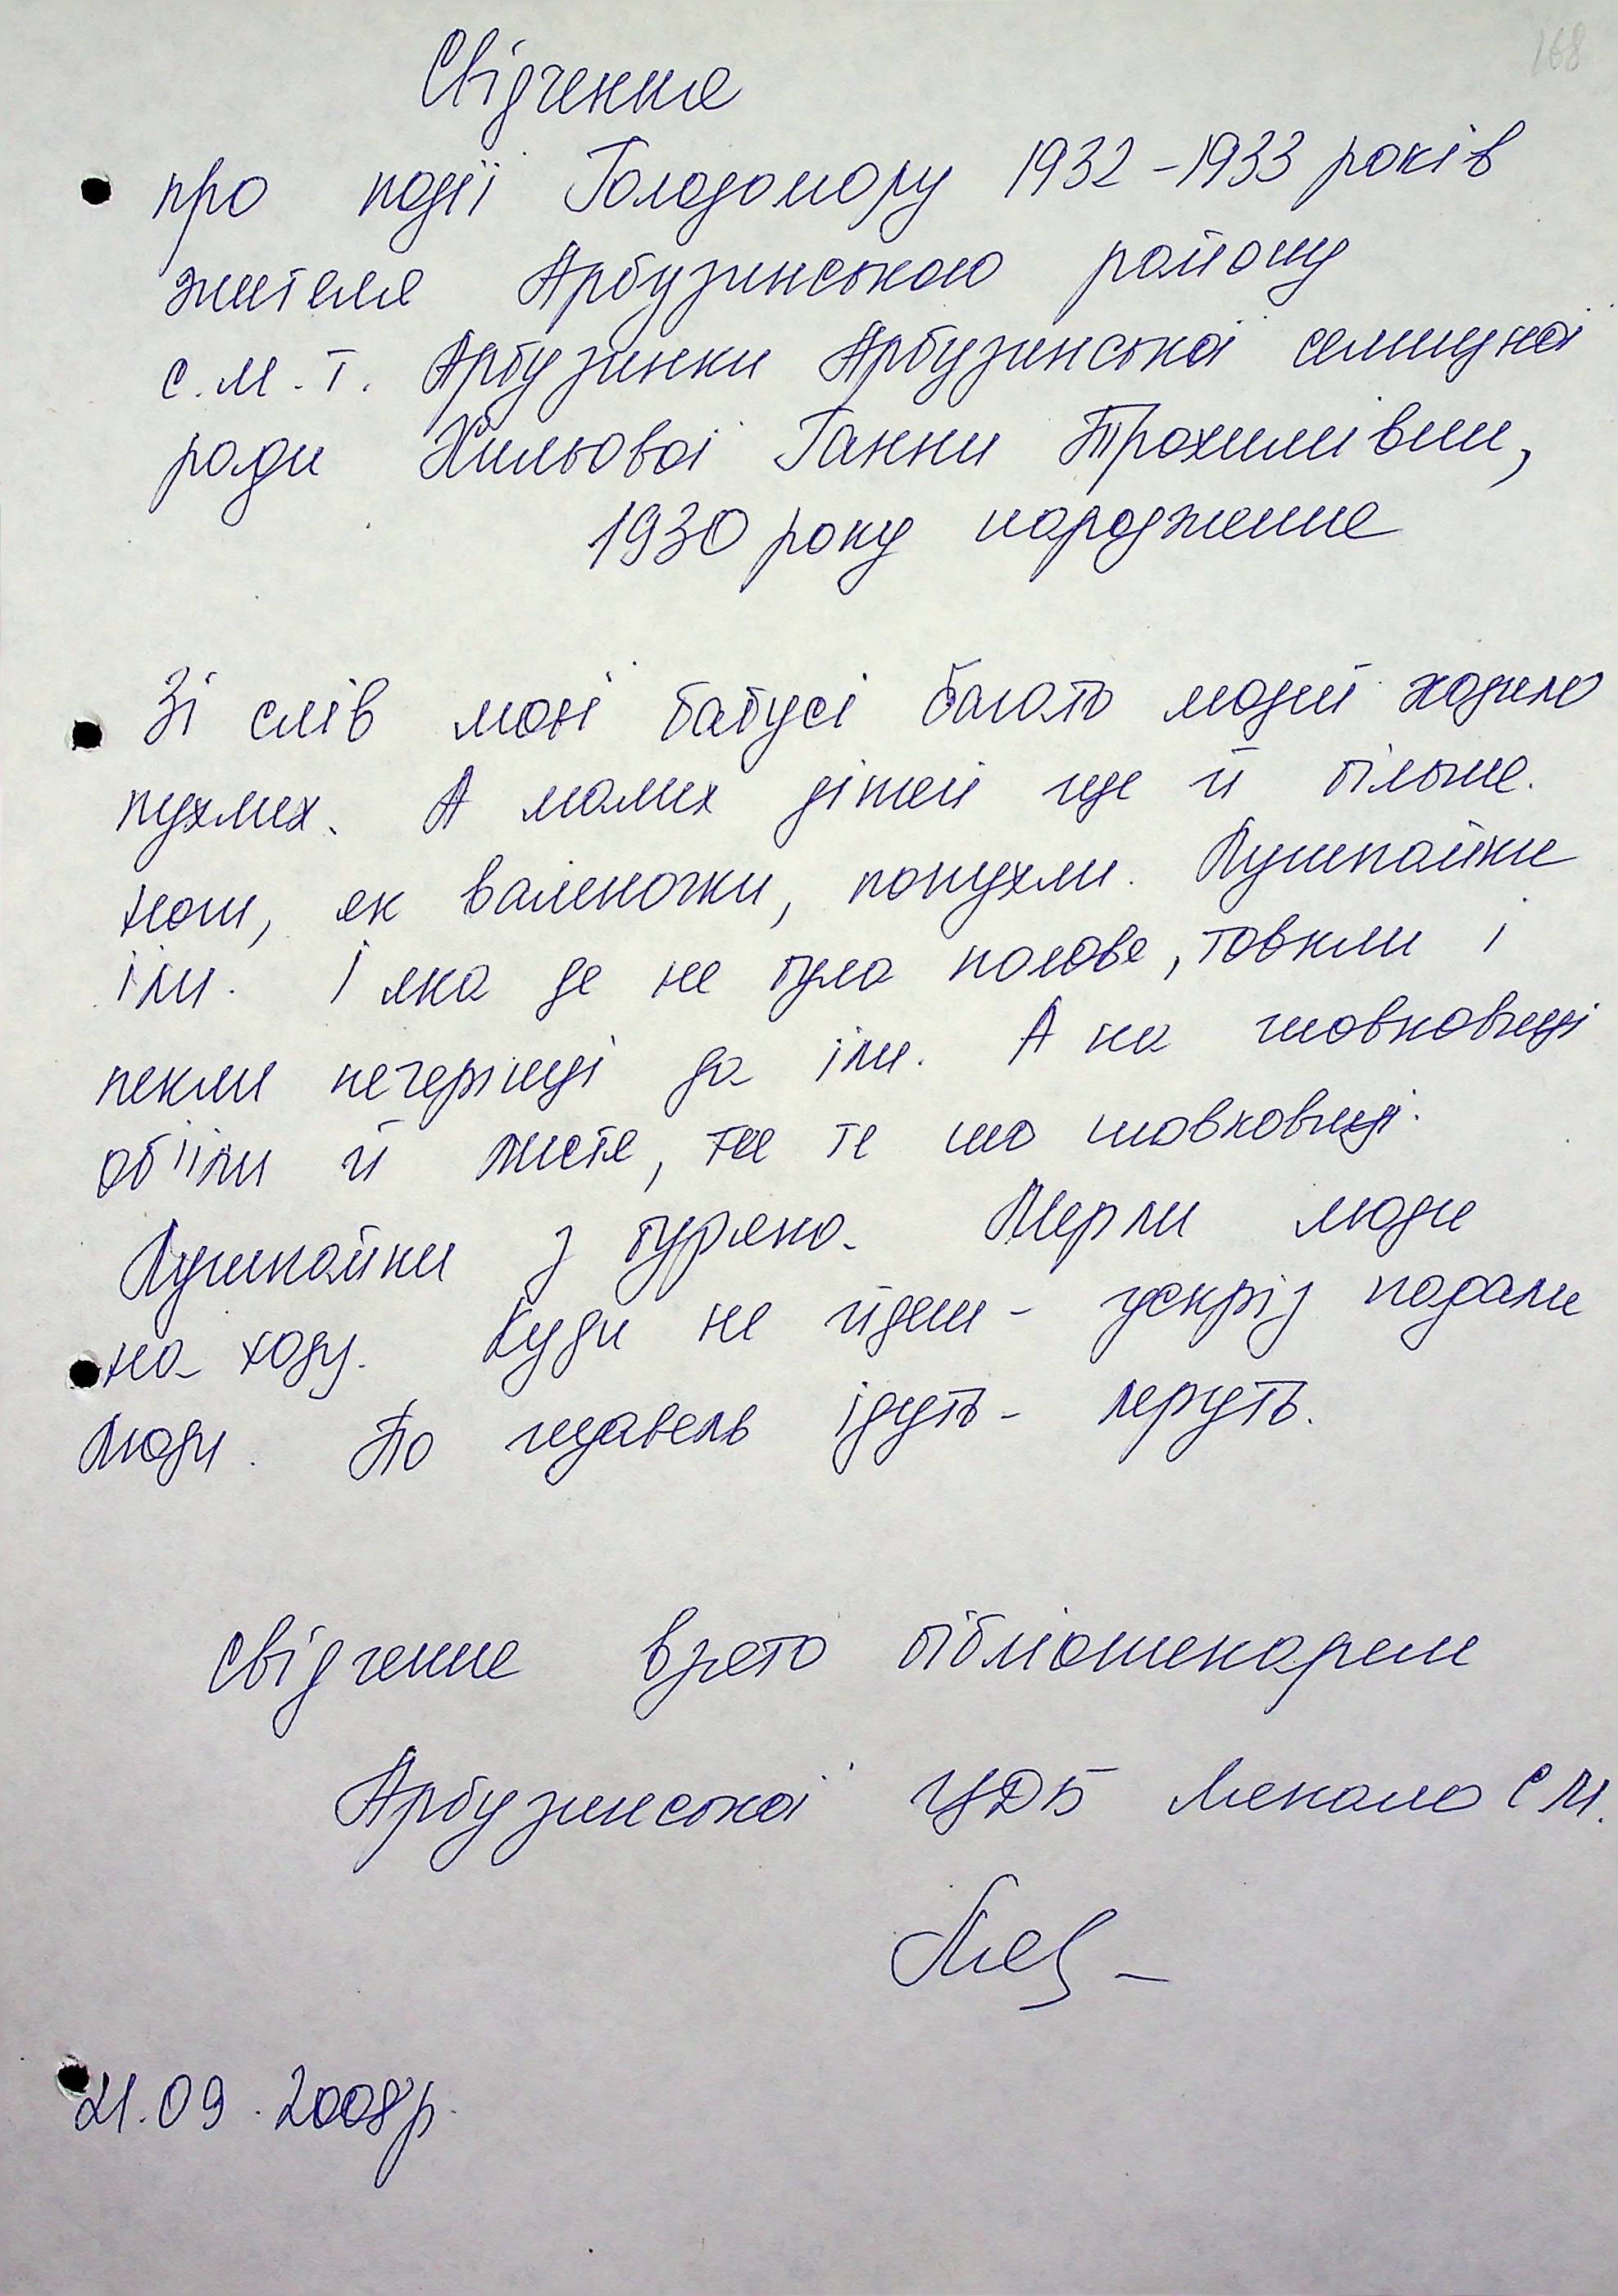 168
Свідчення
про події Голодомору 1932-1933 років
жителя Арбузинського району
с.м.т. Арбузинки Арбузинської селищної
ради Хильової Ганни Трохимівни,
1930 року народження
Зі слів моєї бабусі багато людей ходило
пухлих. А малих дітей ще й більше.
Ноги, як валеночки, попухли. Лушпайки
їли. І яка де не була полова, товкли і
пекли печериці да їли. А на шовковиці
об'їли й листя, не те що шовковиці.
Лушпайки з буряка. Мерли люди
на ходу. Куди не йдеш - ускрізь падали
люди. По щавель ідуть - мруть.
Свідчення взято бібліотекарем
Арбузинської ЦДБ С М.
21.09.2008р.